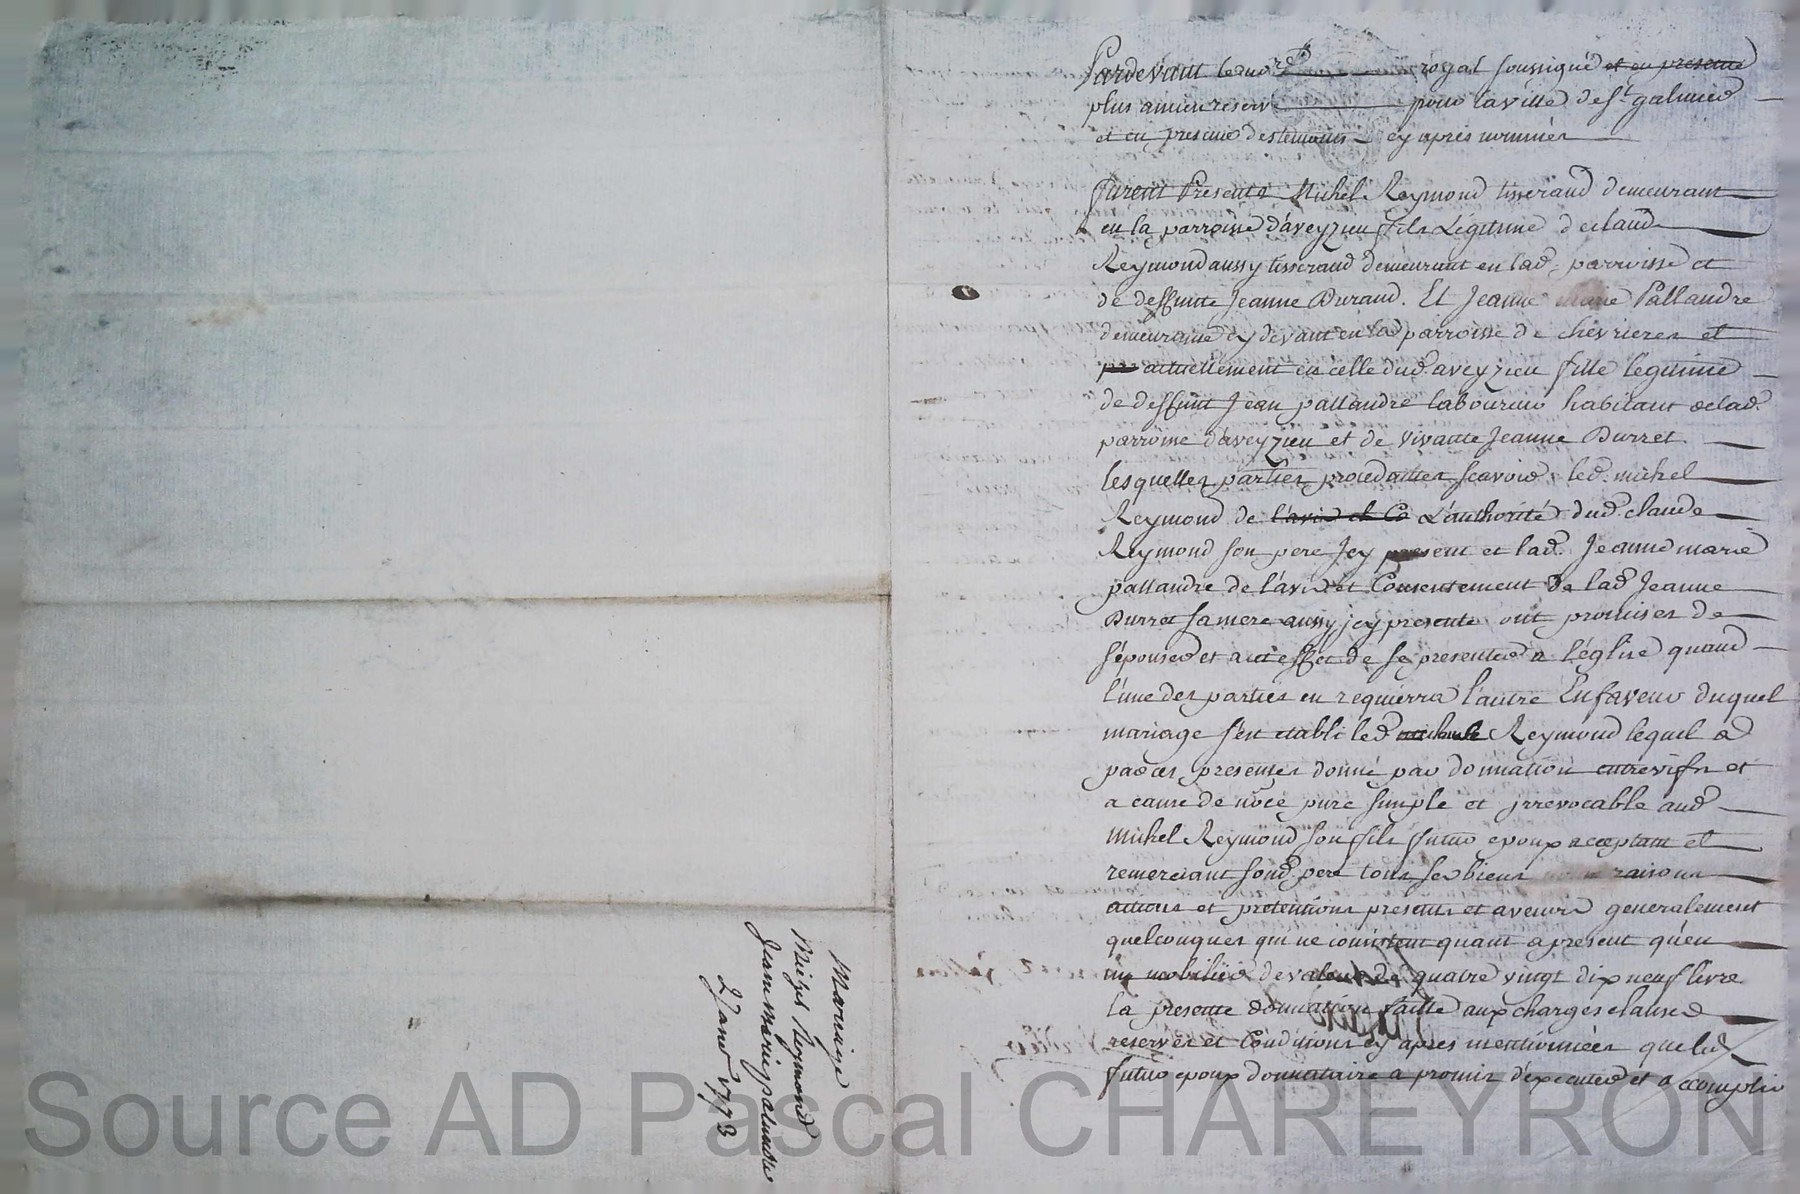 Mariage
Michel Reymond
Jeanne Marie palandre
2 janvr 1773
Pardevant le nore royal soussigné et en presence
plus ancien reservé pour la ville de St galmier
et en presence des temoins cy apres nommés
furent Presents Michel Reymond tisserand demeurant
en la parroisse d'aveyzieu fils Légitime de claude
Reymond aussy tisserand demeurant en lad. parroisse et
de deffunte Jeanne Durand. Et Jeanne Marie Pallandre
demeurante cy devant en lad parroisse de chevrieres et
actuellement en celle dud. aveyzieu fille legitime
de deffunt Jean pallandre laboureur habitant de lad.
parroisse d'aveyzieu et de vivante Jeanne Durret
lesquelles parties procedantes scavoir led. michel
Reymond de l'avis et Co L'authorité dud. claude
Reymond son pere Jcy present et lad. Jeanne marie
pallandre de l'avis et Consentement de lad Jeanne
Durret sa mere aussy jcy presente ont promis de
s'épouser et a cet effet de se presenter a l'église quand
l'une des parties en requierra l'autre En faveur duquel
mariage s'est etabli led Reymond lequel a
par ces presentes donné par donnation entrevifs et
a cause de noce pure simple et jrrevocable aud
Michel Reymond son fils futur epoux acceptant et
remerciant sond. pere tous ses biens raisons
actions et pretentions presents et avenirs generalement
quelconques qui ne consistent quant a present qu'en
un mobilier de valeur de quatre vingt dix neuf livre
la presente donnation faitte aux charges clauses
reserves et Conditions cy apres mentionnées que led
futur epoux donnataire a promis d'executer et accomplir
Source AD Pascal CHAREYRON